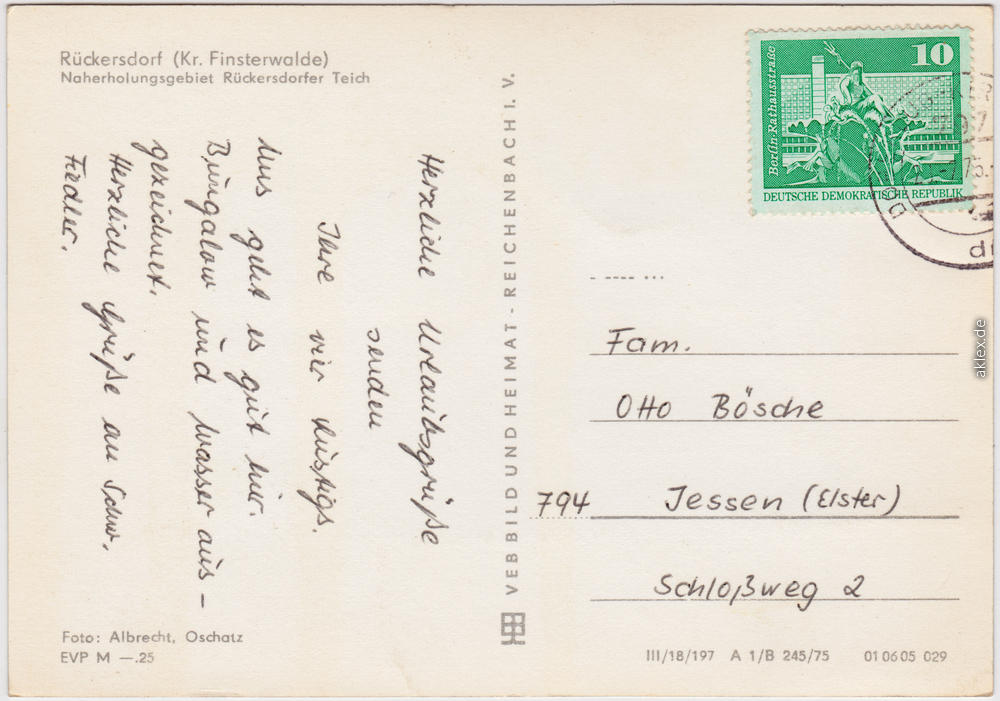 Rückersdorf (Kr. Finsterwalde)
Naherholungsgebiet Rückersdorfer Teich
Herzliche Urlaubsgrüße
senden
Ihre vier Lustigs.
Uns geht es gut hier.
Bungalow und Wasser aus-
gezeichnet.
Herzliche Grüße an Schw.
Fiedler.
Foto: Albrecht, Oschatz
EVP M —.25
VEB BILD UND HEIMAT - REICHENBACH I. V.
10
Berlin-Rathausstraße
DEUTSCHE DEMOKRATISCHE REPUBLIK
Fam.
Otto Bösche
794 Jessen (Elster)
Schloßweg 2
III/18/197 A 1/B 245/75 01 06 05 029
aklex.de